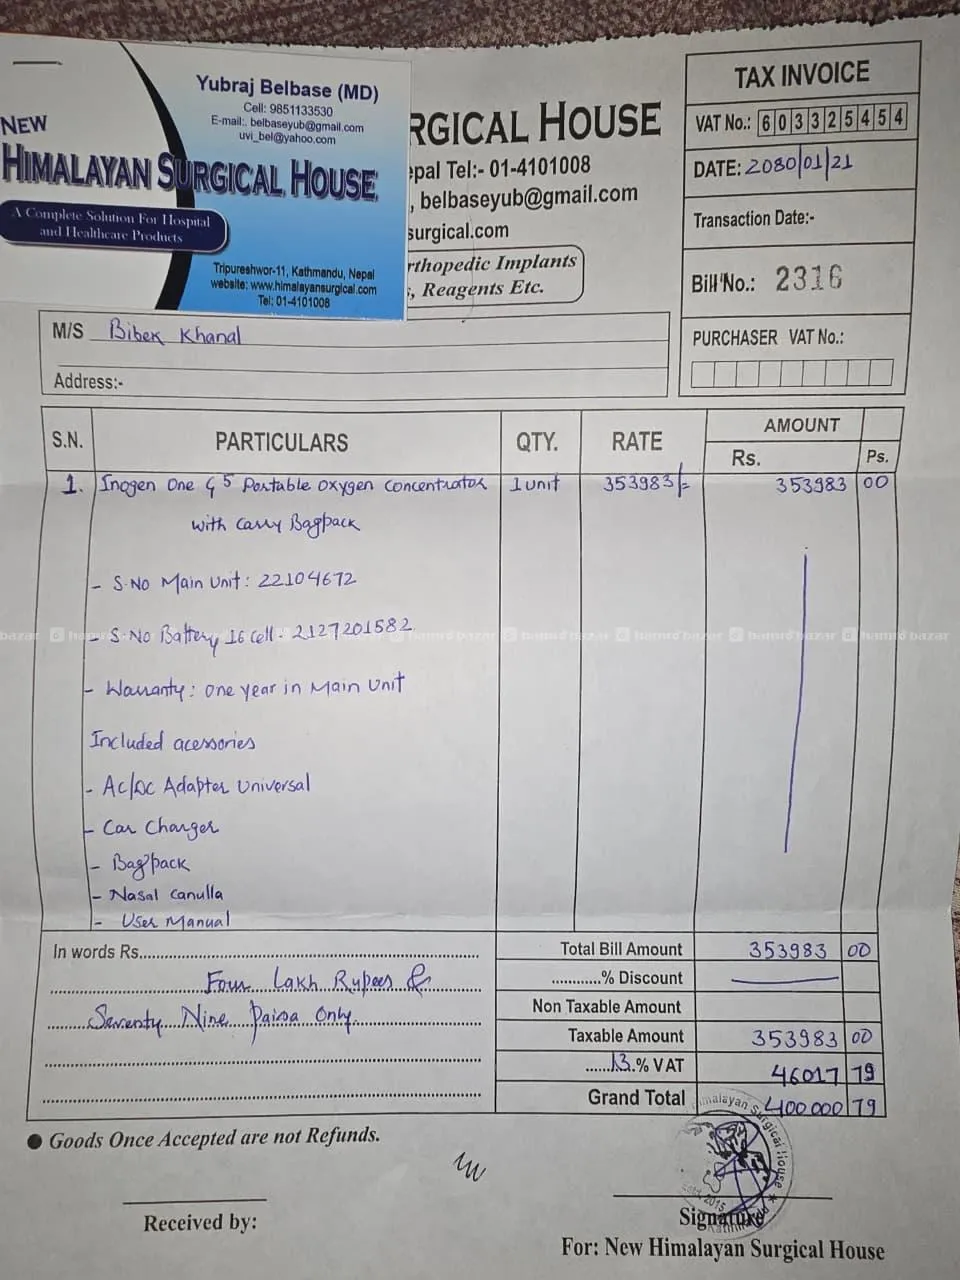 Yubraj Belbase (MD)
Cell: 9851133530
E-mail:. belbaseyub@gmail.com
uvi_bel@yahoo.com
NEW
HIMALAYAN SURGICAL HOUSE
A Complete Solution For Hospital
and Healthcare Products
Tripureshwor-11, Kathmandu, Nepal
website: www.himalayansurgical.com
Tel: 01-4101008
RGICAL HOUSE
epal Tel:- 01-4101008
, belbaseyub@gmail.com
surgical.com
rthopedic Implants
, Reagents Etc.
TAX INVOICE
VAT No.: 603325454
DATE: 2080/01/21
Transaction Date:-
Bill No.: 2316
PURCHASER VAT No.:
M/S Bibek Khanal
Address:-
S.N. PARTICULARS QTY. RATE AMOUNT
Rs. Ps.
1. Inogen One G5 Portable Oxygen Concentrator 1 unit 353983/= 353983 00
with Carry Bagpack
- S.No Main Unit: 22104672
- S.No Battery 16 cell - 2127201582
hamro bazar
- Warranty: One year in Main Unit
Included acessories
- Ac/DC Adapter Universal
- Car Charger
- Bagpack
- Nasal Canulla
- User Manual
In words Rs. Total Bill Amount 353983 00
Four Lakh Rupees & ............% Discount
Seventy Nine Paisa Only. Non Taxable Amount
Taxable Amount 353983 00
13.% VAT 46017 79
Grand Total 400000 79
● Goods Once Accepted are not Refunds.
Himalayan Surgical House
Estd. 2015
Received by:
Signature
For: New Himalayan Surgical House